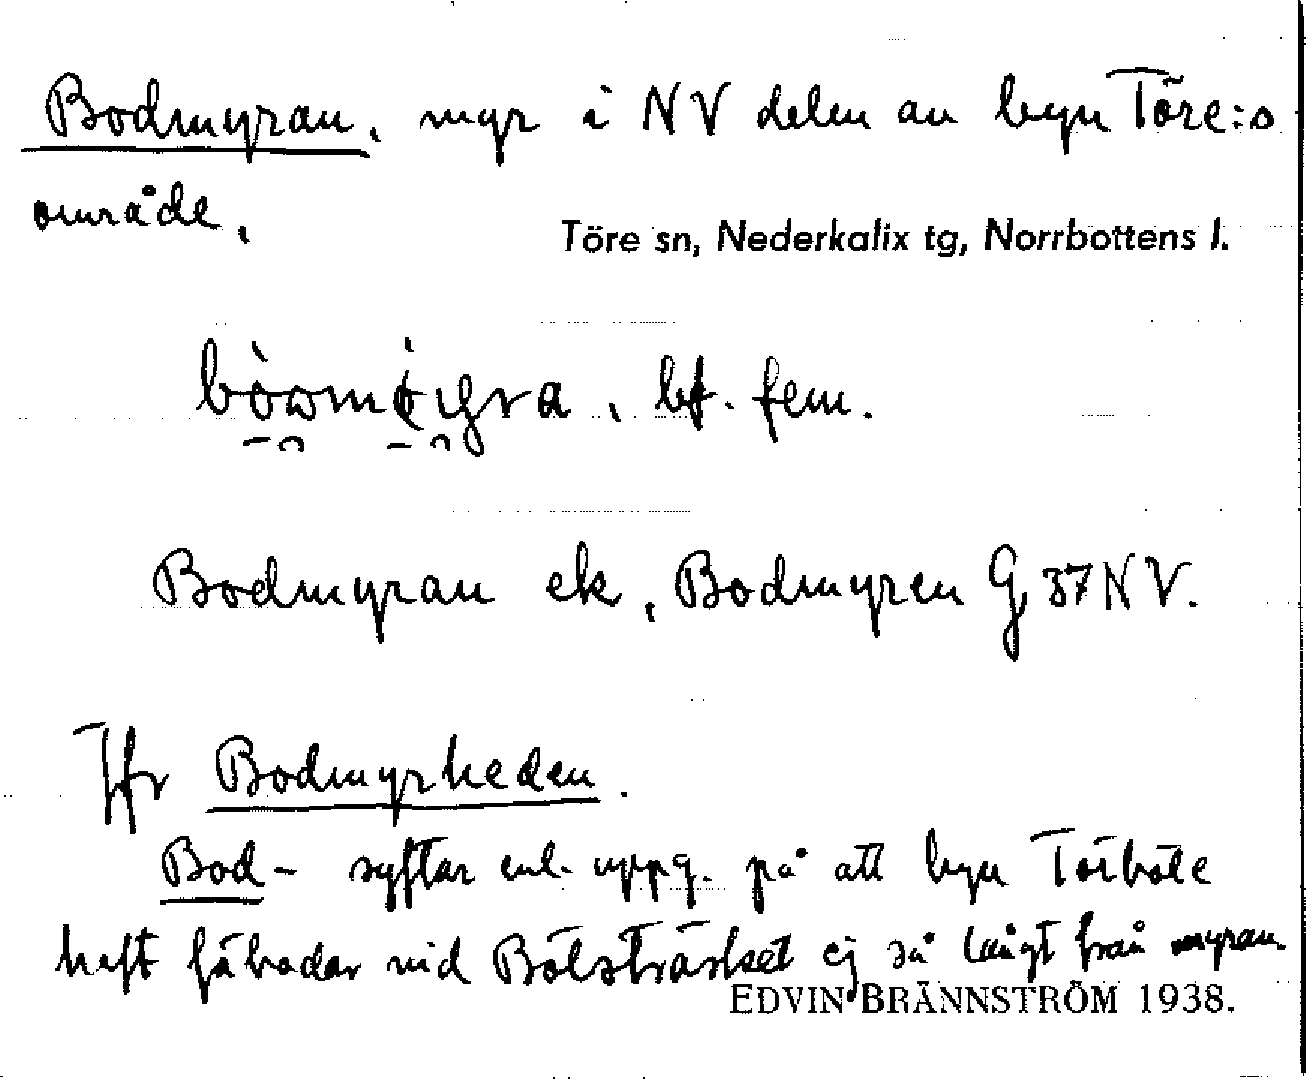 Bodmyran, myr i NV delen av byn Töre:s
område.
Töre sn, Nederkalix tg, Norrbottens l.
bf. fem.
Bodmyran ek, Bodmyren G 37 NV.
Jfr Bodmyrheden.
Bod- syftar enl. uppg. på att byn Törböle
haft fäbodar vid Bölsträsket ej så långt från myran.
EDVIN BRÄNNSTRÖM 1938.